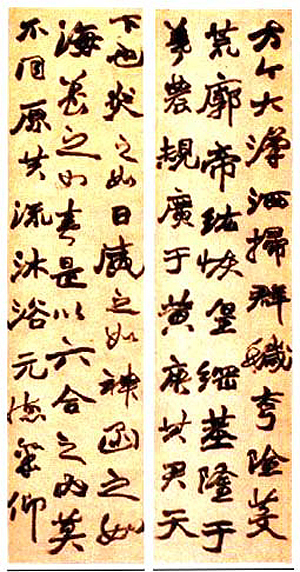 方今大漢洒掃群穢夷險芟
荒廓帝紘恢皇綱基隆于
羲農規廣于黃唐其君天
下也炎之如日威之如神函之如
海養之如春是以六合之内莫
不同原共流沐浴元德稟仰